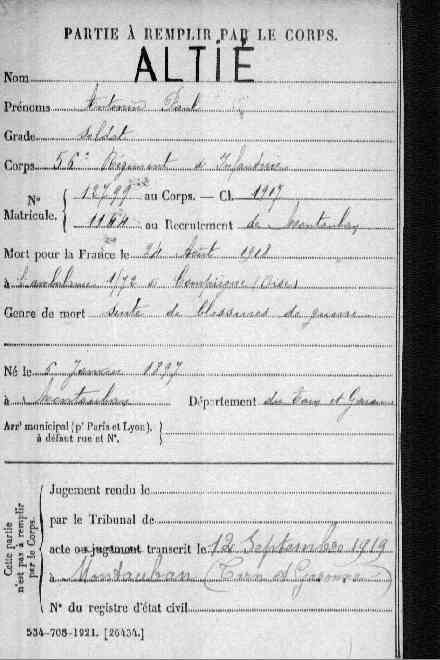 PARTIE À REMPLIR PAR LE CORPS.
Nom ALTIÉ
Prénoms Antonin Paul
Grade Soldat
Corps 56e Régiment d'Infanterie
N° Matricule. { 12799 au Corps. — Cl. 1917
1164 au Recrutement de Montauban
Mort pour la France le 24 Août 1918
à l'ambulance 1/72 à Compiègne (Oise)
Genre de mort suite de blessures de guerre
Né le 5 Janvier 1897
à Montauban Département du Tarn et Garonne
Arrt municipal (pr Paris et Lyon), à défaut rue et N°.
Cette partie n'est pas à remplir par le Corps.
Jugement rendu le
par le Tribunal de
acte ou jugement transcrit le 12 Septembre 1919
à Montauban (Tarn et Garonne)
N° du registre d'état civil
534-708-1921. [26434.]